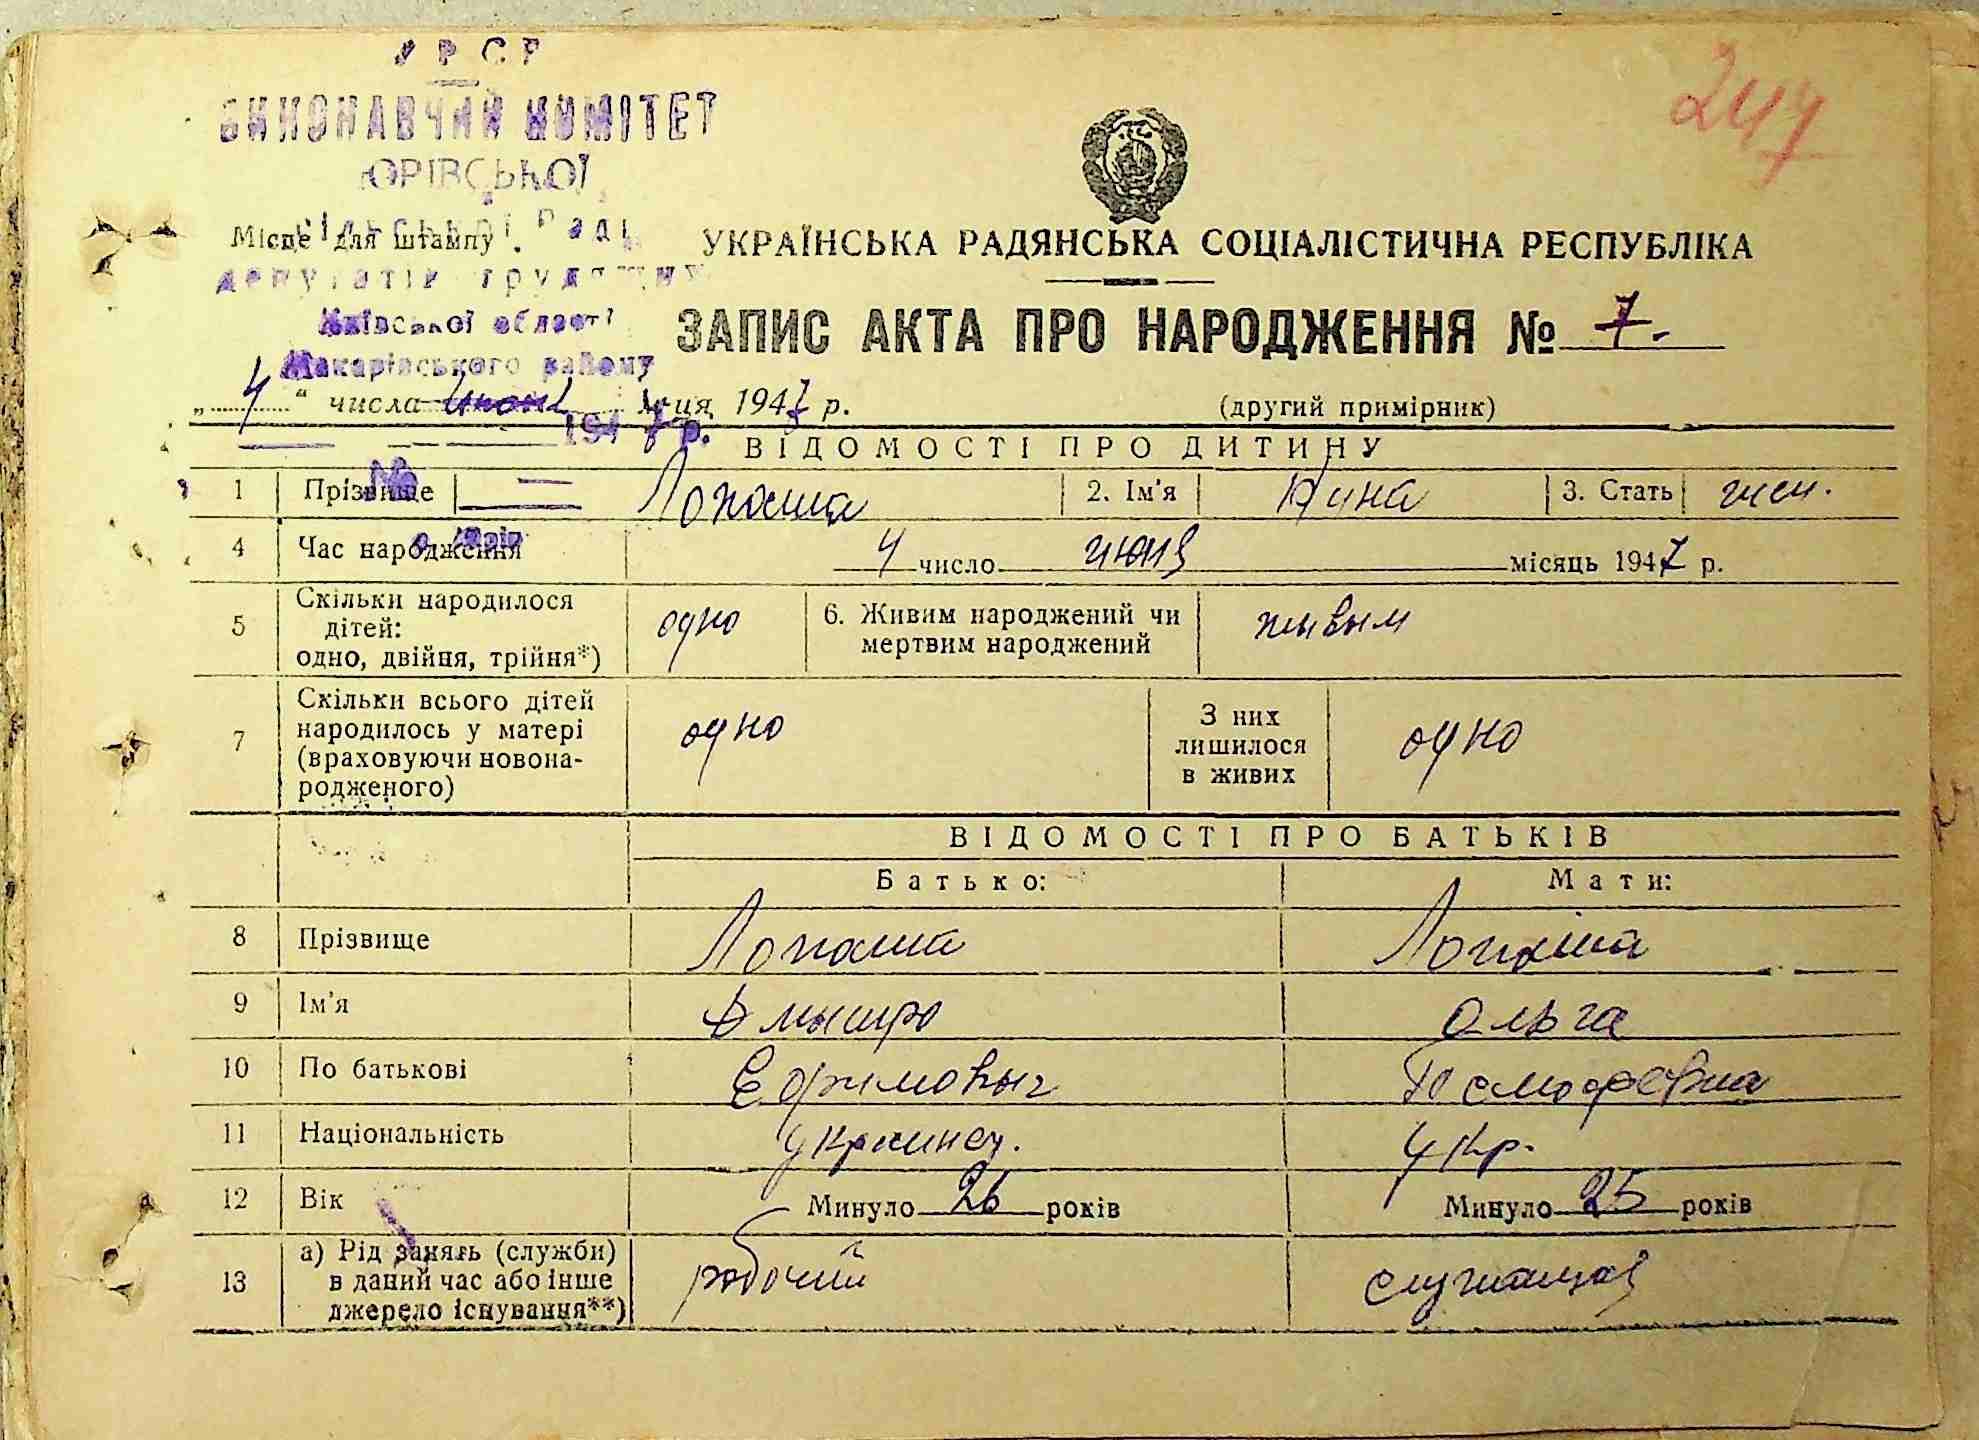 УРСР
247
ВИКОНАВЧИЙ КОМІТЕТ
ЮРІВСЬКОЇ
Сільської Ради
Місце для штампу
УКРАЇНСЬКА РАДЯНСЬКА СОЦІАЛІСТИЧНА РЕСПУБЛІКА
депутатів трудящих
Київської області
ЗАПИС АКТА ПРО НАРОДЖЕННЯ № 7.
Макарівського району
„4“ числа июня м-ця 1947 р.
(другий примірник)
194 р.
ВІДОМОСТІ ПРО ДИТИНУ
№
1 Прізвище Лопаша 2. Ім'я Нина 3. Стать жен.
4 Час народження 4 число июня місяць 1947 р.
5 Скільки народилося дітей: одно, двійня, трійня*) одно 6. Живим народжений чи мертвим народжений живым
7 Скільки всього дітей народилось у матері (враховуючи новонародженого) одно З них лишилося в живих одно
ВІДОМОСТІ ПРО БАТЬКІВ
Батько: Мати:
8 Прізвище Лопаша Лопаша
9 Ім'я Дмытро Ольга
10 По батькові Ефимовыч
11 Національність украинец. укр.
12 Вік Минуло 26 років Минуло 25 років
13 а) Рід занять (служби) в даний час або інше джерело існування**) рабочий служащая